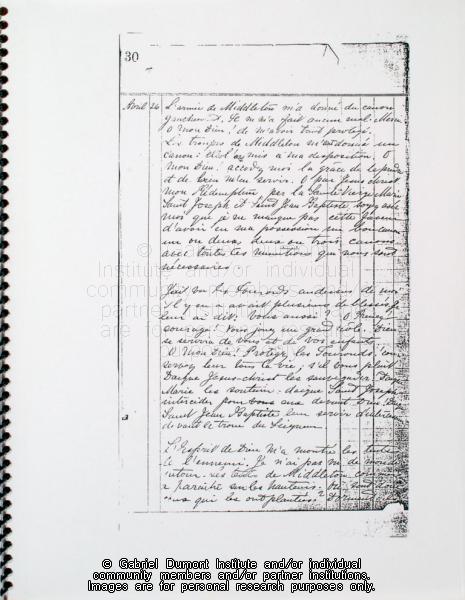 30
Avril 24 L'armée de Middleton m'a donné du canon
gauche. Il ne m'a fait aucun mal. Merci
O mon Dieu! de m'avoir tout protégé.
Les troupes de Middleton m'ont donné un
canon: elles mis à ma disposition. O
mon Dieu! accordez moi la grâce de le prendre
et de bien m'en servir. O par Jésus-Christ
mon Rédempteur par la Sainte Vierge Marie
Saint Joseph et Saint Jean Baptiste soyez avec
moi que je ne manque pas cette
d'avoir en ma possession un
un ou deux, deux ou trois canons
avec toutes les munitions qui nous sont
nécessaires.
J'ai vu les Touronds au dessus de moi
Il y en avait plusieurs de blessés je
leur ai dit: Vous aussi? O Prenez
courage! Vous jouez un grand rôle. Dieu
se servira de vous et de vos enfants.
O mon Dieu! Protégez les Touronds: con
servez leur tous la vie; s'il vous plait
Daigne Jésus-Christ les sauvegarder. Daigne
Marie les soutenir: daigne Saint Joseph
intercéder pour tous eux devant Dieu. Que
Saint Jean Baptiste leur serve
devant le trône du Seigneur.
L'Esprit de Dieu m'a montré les
de l'ennemi. Je n'ai pas vu de monde
autour. de Middleton
paraître sur les hauteurs.
ceux qui les ont plantées?
© Gabriel Dumont Institute and/or individual
community members and/or partner institutions.
Images are for personal research purposes only.